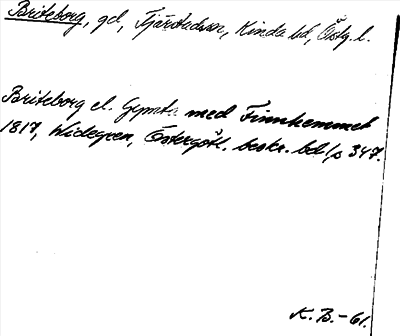 Briteborg, gd, Tjärstadssn, Kinda hd, Östg. l.
Briteborg el. Gymta med Finnhemmet
1817, Widegren, Östergötl. beskr. bd I, s 347.
K. B. – 61.